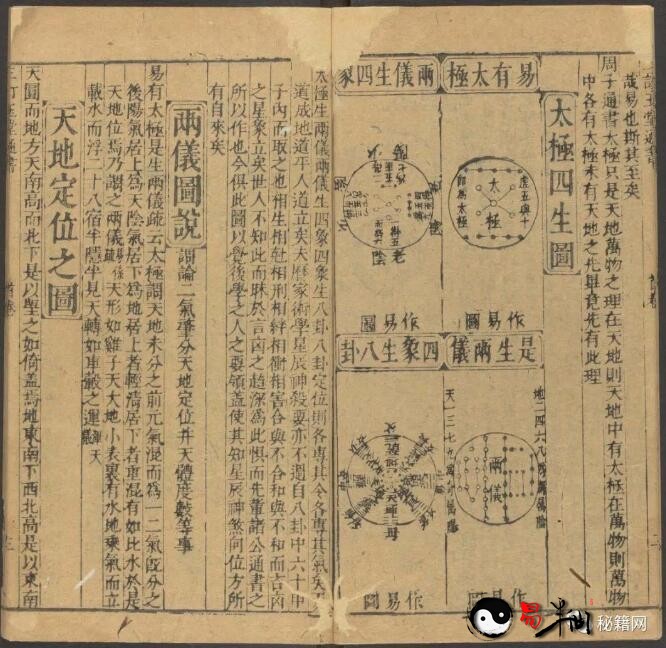 周子通書太極只是天地萬物之理在天地則天地中有太極在萬物則萬物
中各有太極未有天地之先畢竟先有此理
哉易也斯其至矣
太極四生圖
易有太極
太極
虛五與十
即為太極
作易圖
是生兩儀
兩儀
地二四六八
天一三七九
作易圖
兩儀生四象
老陰
作易圖
四象生八卦
母
作易圖
太極生兩儀兩儀生四象四象生八卦八卦定位則各專其令各專其氣矣
道成地道平人道立矣夫曆家術學星辰神殺要亦不還自八卦中六十甲
子內而取之也相生相尅相刑相絆相衝相害合與不合和與不和而吉凶
之星象立矣世人不知此而昧於言凶之趨深為此惧而先董諸公通書之
所以作也今俱此圖以覺後學之人之要領盖使其知星辰神煞何位方所
有自來矣
兩儀圖說
謂論二氣肇分天地定位并天體度數等事
易有太極是生兩儀疏云太極謂天地未分之前元氣混而為一二氣旣分之
後陽氣居上為天陰氣居下為地居上者輕清居下者重混有如此水於是
天地位焉乃謂之兩儀
天形如雞子天大地小表裏有水地乘氣而立
載水而浮二十八宿半隱半見天轉如車轂之運
天地定位之圖
天圓而地方天南高而北下是以望之如倚盖焉地東南下西北高是以東南
首卷
二
三
秘籍网